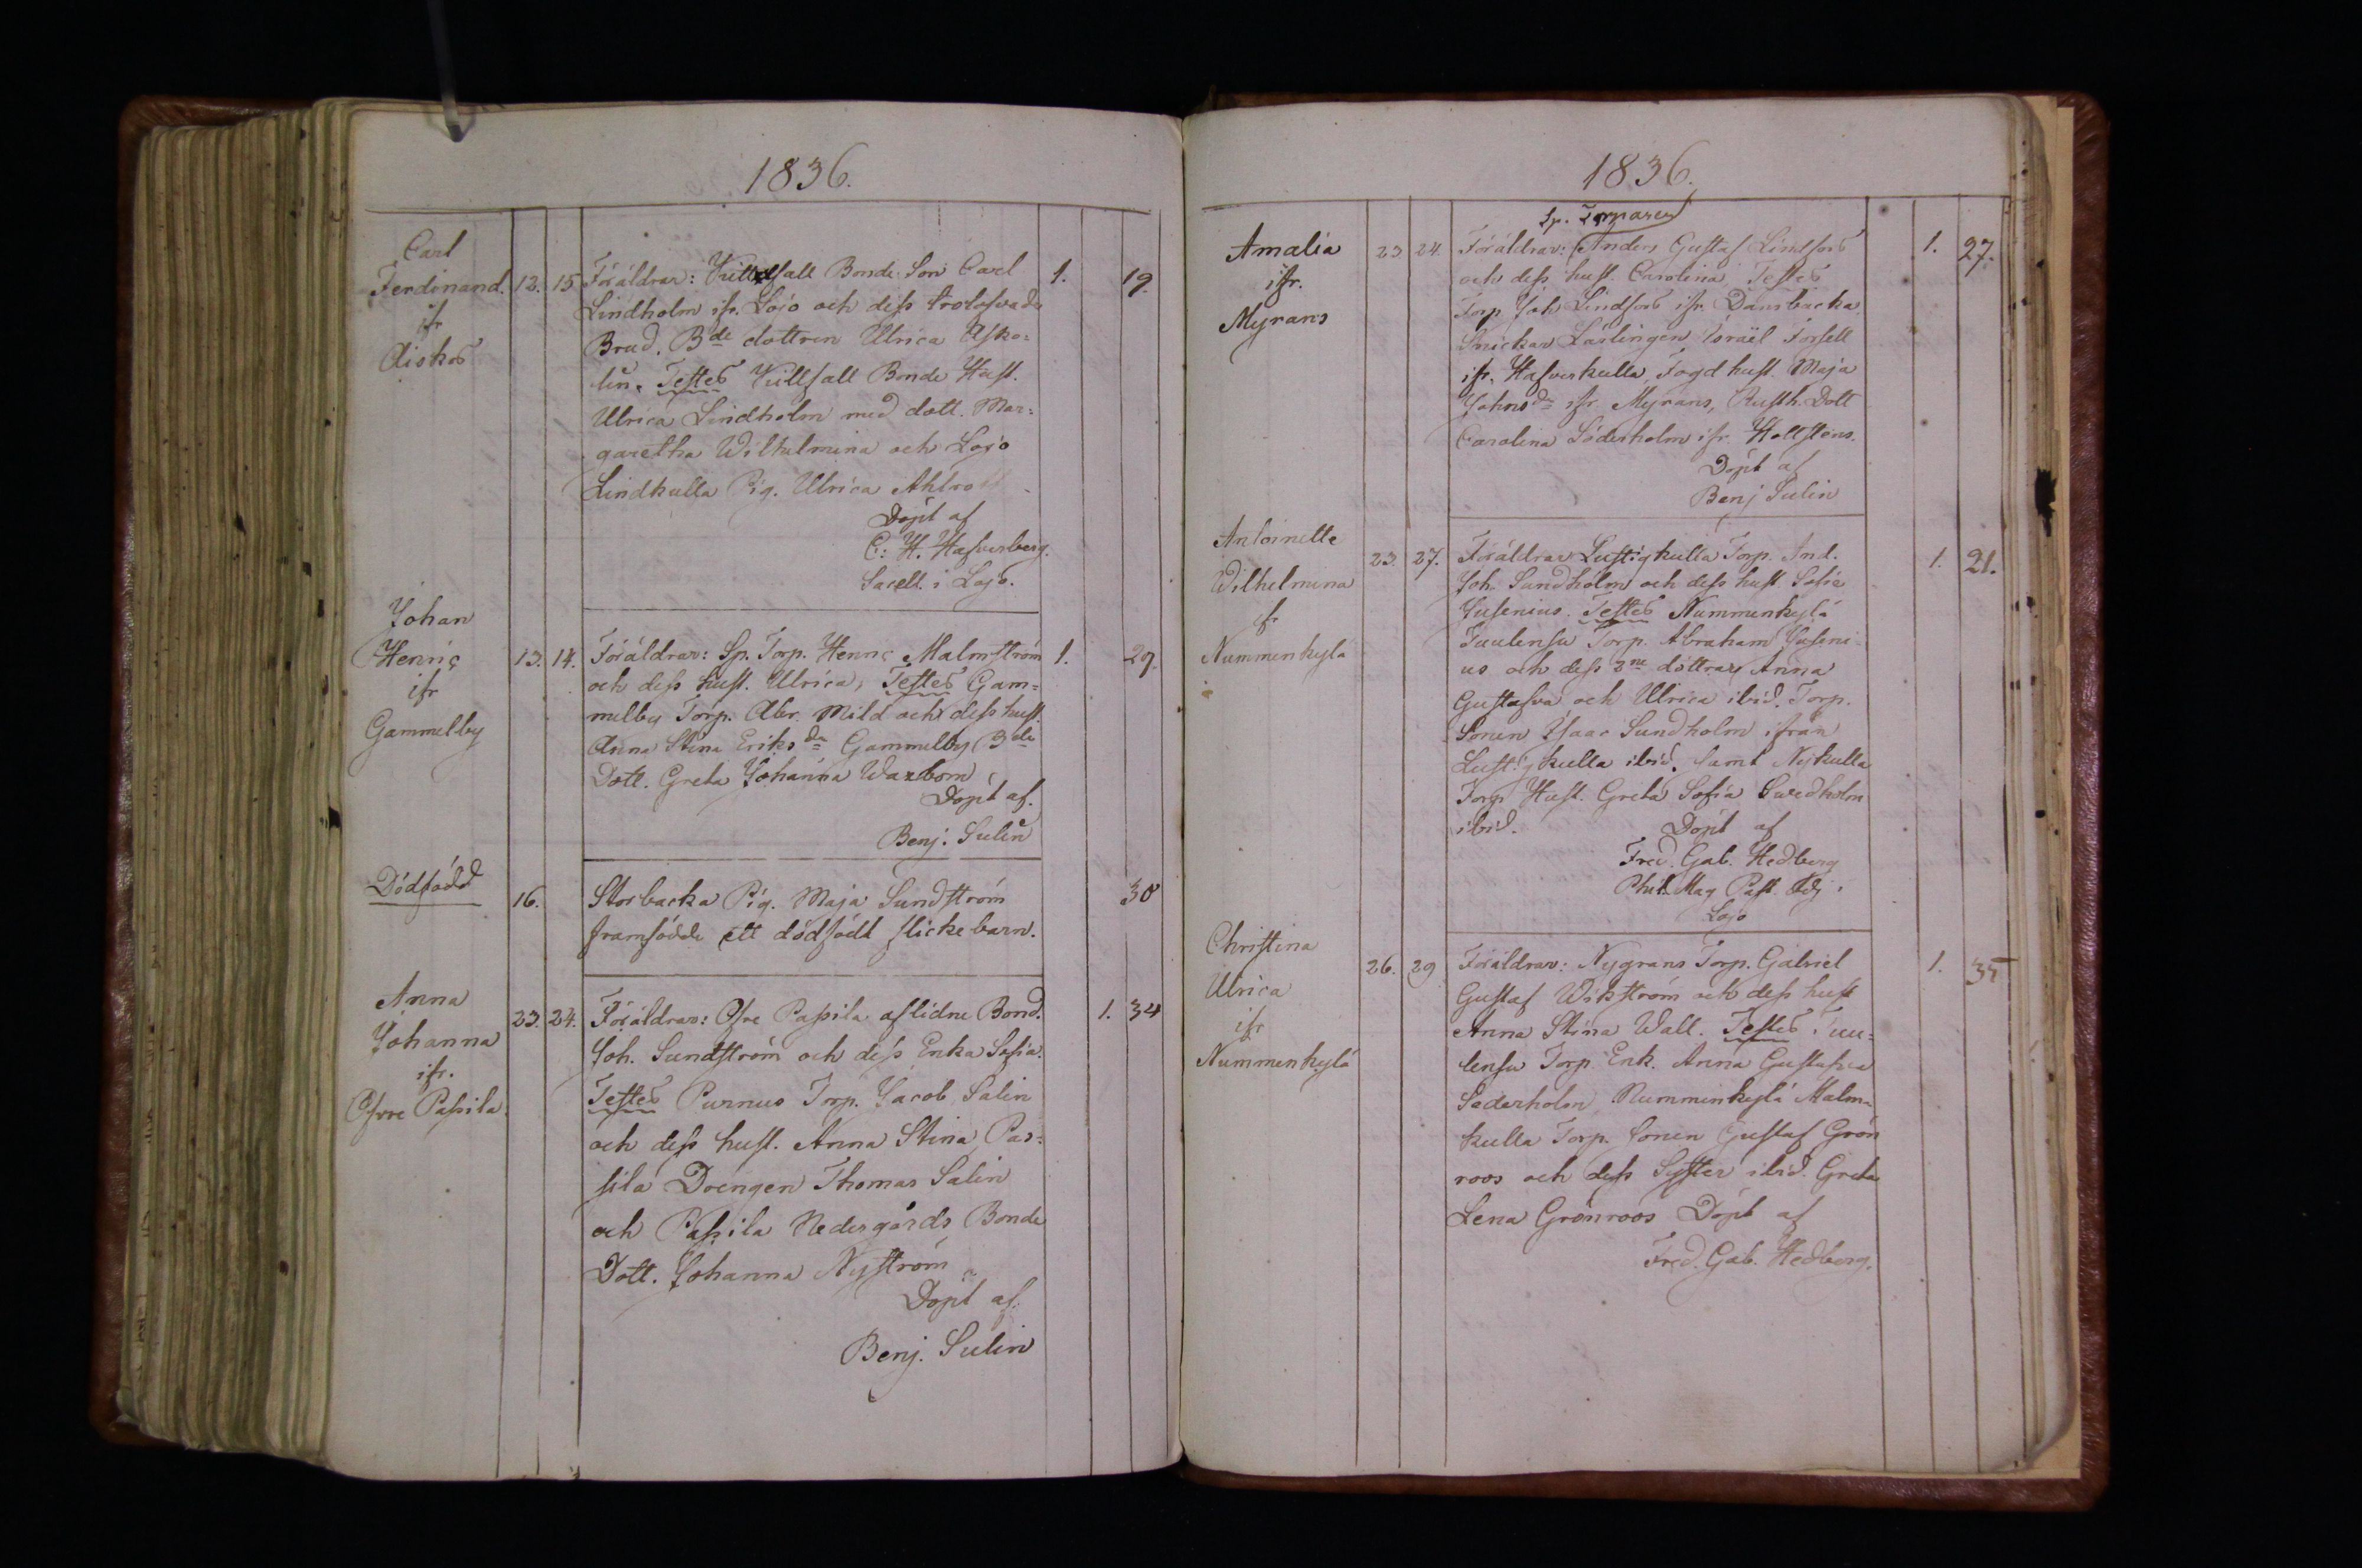 1836.
Carl
Ferdinand.
ifr
Aiskos
12. 15 Föräldrar: Kittelfall Bonde Son Carl 1. 19.
Lindholm ifr. Lojo och dess trolofvade
Brud. Bde dottren Ulrica Asko=
lin. Testes Kittfall Bonde Hust.
Ulrica Lindholm med dott. Mar=
garetha Wilhelmina och Lojo
Lindkulla Pig. Ulrica Ahlro
Döpt af
C: H. Hafverberg.
Sacell. i Lojo.
Johan
Henric
ifr
Gammelby
13. 14. Föräldrar: Sp. Torp. Henric Malmström 1. 29.
och dess hust. Ulrica, Testes Gam=
melby Torp. Abr. Mild och dess hust.
Anna Stina Eriksdr Gammelby Bde
Dott. Greta Johanna Warbom
Döpt af.
Benj. Sulin
Dödfödd
16. Storbacka Pig. Maja Sundström 30
framfödde ett dödfödt flickebarn.
Anna
Johanna
ifr.
Ofvre Passila
23. 24. Föräldrar: Ofre Passila aflidne Bond. 1. 34
Joh. Sundström och dess Enka Sofia.
Testes Purnus Torp. Jacob Salin
och dess hust. Anna Stina Pas=
sila Drengen Thomas Salin
och Passila Nedergårds Bonde
Dott. Johanna Nyström
Döpt af.
Benj. Sulin
1836.
Sp. Torparen
Amalia
ifr.
Myrans
23 24. Föräldrar: Anders Gustaf Lindfors 1. 27.
och dess hust. Carolina, Testes
Torp Joh Lindfors ifr. Dansbacka
Snickar Lärlingen Israël Forsell
ifr. Hafverkulla, Fogd hust. Maja
Johnsdr ifr Myrans, Rusth. Dott
Carolina Söderholm ifr. Hollstens.
Döpt af
Benj Sulin
Antoinette
Wilhelmina
fr
Nummenkylä
23. 27. Föräldrar Lustigkulla Torp. And. 1. 21.
Joh. Sundholm och dess hust Sofia
Jusenius. Testes Nummenkylä
Tuulensu Torp. Abraham Juseni=
us och dess 2ne döttrar Anna
Gustafva och Ulrica ibid. Torp.
Sonen Isaac Sundholm ifrån
Lustigkulla ibid. samt Nykulla
Torp Hust. Greta Sofia Swedholm
ibid. Döpt af
Fred. Gab. Hedberg
Phil. Mag Past. Adj i
Lojo
Christina
Ulrica
ifr
Nummenkylä
26. 29 Föräldrar: Nygrans Torp. Gabriel 1. 35
Gustaf Wikström och dess hust
Anna Stina Wall. Testes Tuu=
lensu Torp Enk. Anna Gustafva
Sederholm, Nummenkylä Malm=
kulla Torp. Sonen Gustaf Grön
roos och dess Syster ibid. Greta
Lena Grönroos Döpt af
Fred. Gab. Hedberg.